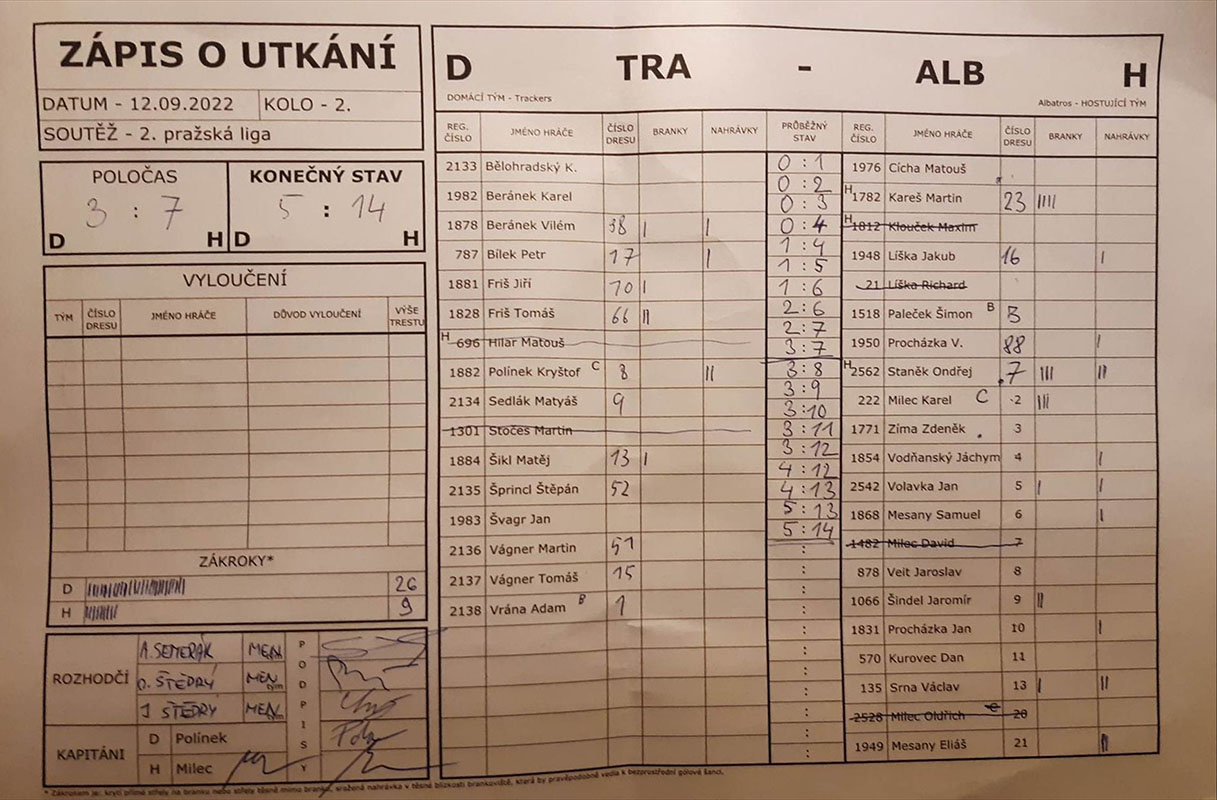 ZÁPIS O UTKÁNÍ
DATUM - 12.09.2022 KOLO - 2.
SOUTĚŽ - 2. pražská liga
POLOČAS
3 : 7
D H
KONEČNÝ STAV
5 : 14
D H
VYLOUČENÍ
TÝM ČÍSLO DRESU JMÉNO HRÁČE DŮVOD VYLOUČENÍ VÝŠE TRESTU
ZÁKROKY*
D 26
H 9
ROZHODČÍ
A. SEMERÁK MEN
O. ŠTĚDRÝ MEN tým
J ŠTĚDRÝ MEN tým
PODPISY
KAPITÁNI
D Polínek
H Milec
D TRA - ALB H
DOMÁCÍ TÝM - Trackers Albatros - HOSTUJÍCÍ TÝM
REG. ČÍSLO JMÉNO HRÁČE ČÍSLO DRESU BRANKY NAHRÁVKY PRŮBĚŽNÝ STAV REG. ČÍSLO JMÉNO HRÁČE ČÍSLO DRESU BRANKY NAHRÁVKY
2133 Bělohradský K.
1982 Beránek Karel
1878 Beránek Vilém 38 | |
787 Bílek Petr 17 |
1881 Friš Jiří 70 |
1828 Friš Tomáš 66 ||
H 696 Hilar Matouš
1882 Polínek Kryštof C 8 ||
2134 Sedlák Matyáš 9
1301 Stočes Martin
1884 Šikl Matěj 13 |
2135 Šprincl Štěpán 52
1983 Švagr Jan
2136 Vágner Martin 51
2137 Vágner Tomáš 15
2138 Vrána Adam B 1
0 : 1
0 : 2
0 : 3
0 : 4
1 : 4
1 : 5
1 : 6
2 : 6
2 : 7
3 : 7
3 : 8
3 : 9
3 : 10
3 : 11
3 : 12
4 : 12
4 : 13
5 : 13
5 : 14
:
:
:
:
:
:
:
:
1976 Cícha Matouš
H 1782 Kareš Martin 23 ||||
H 1812 Klouček Maxim
1948 Líška Jakub 16 |
21 Líška Richard
1518 Paleček Šimon B
1950 Procházka V. 88 |
H 2562 Staněk Ondřej 7 ||| ||
222 Milec Karel C 2 |||
1771 Zíma Zdeněk 3
1854 Vodňanský Jáchym 4 |
2542 Volavka Jan 5 | |
1868 Mesany Samuel 6 |
1482 Milec David 7
878 Veit Jaroslav 8
1066 Šindel Jaromír 9 ||
1831 Procházka Jan 10 |
570 Kurovec Dan 11
135 Srna Václav 13 | ||
2528 Milec Oldřich 20
1949 Mesany Eliáš 21 ||
* Zákrokem je: krytí přímé střely na branku nebo střely těsně mimo branku, sražená nahrávka v těsné blízkosti brankoviště, která by pravěpodobně vedla k bezprostřední gólové šanci.